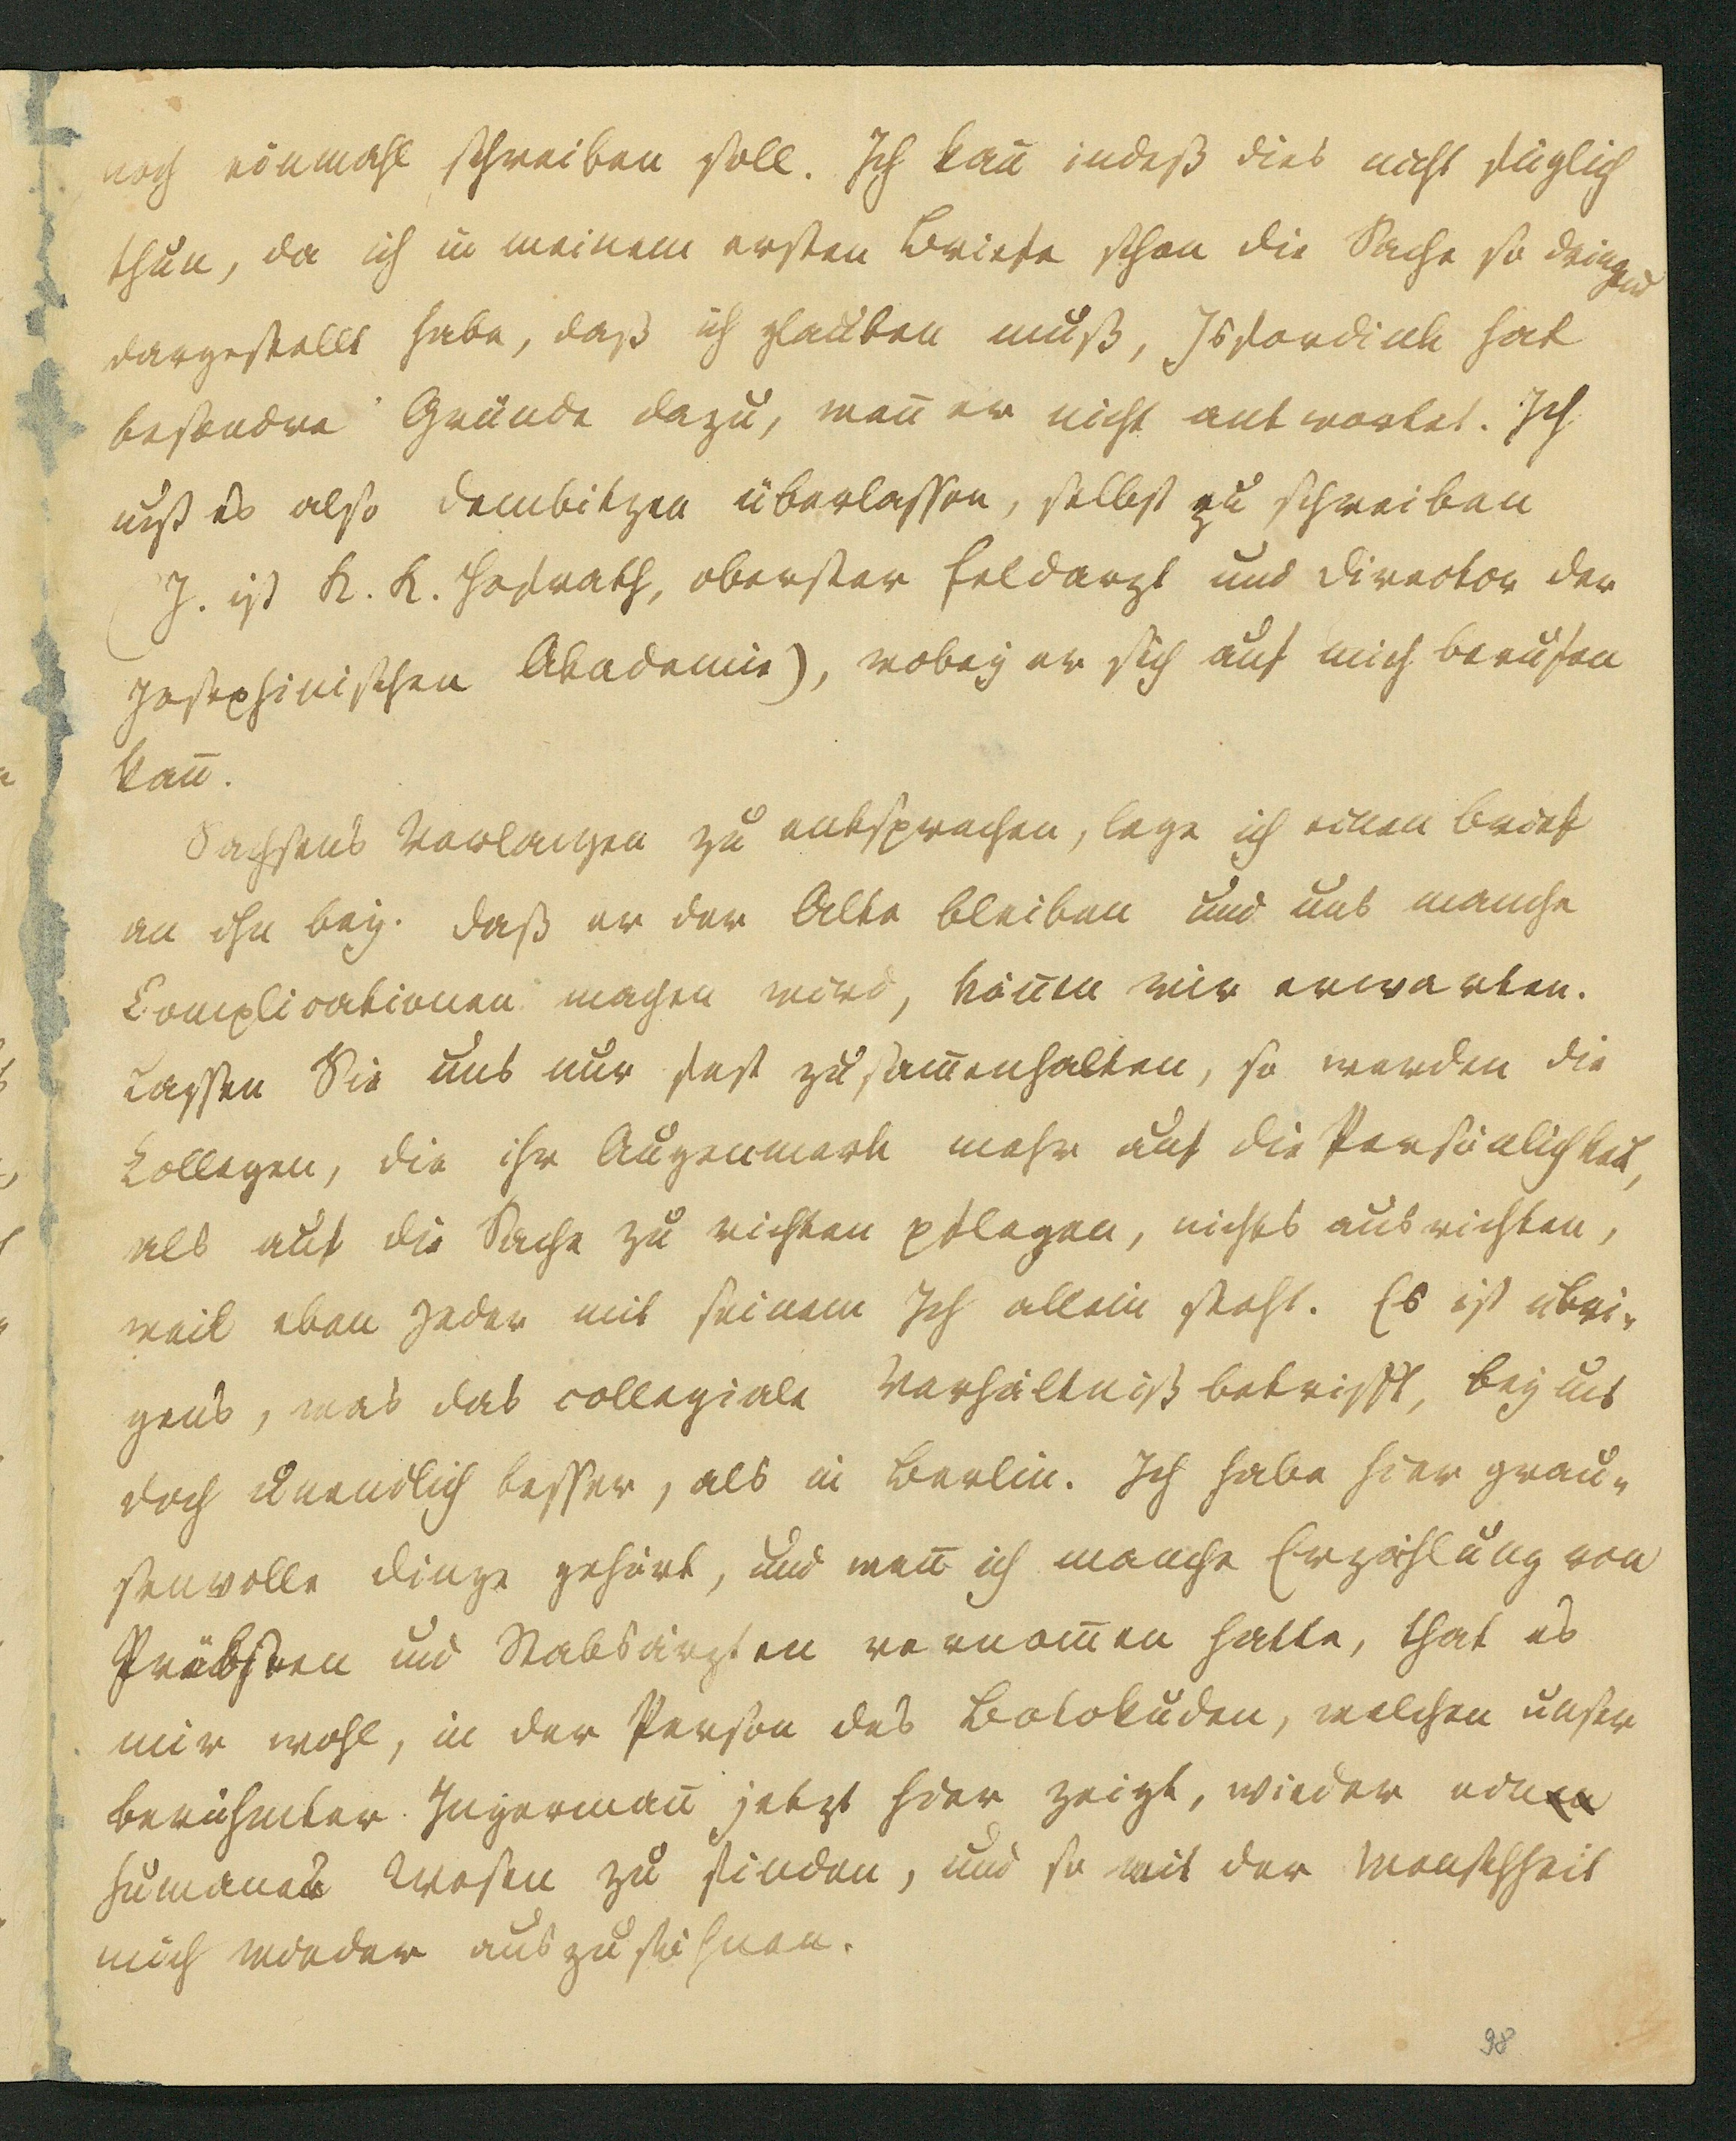 noch einmahl schreiben soll. Ich kan̅ indeß dies nicht füglich
thun, da ich in meinem ersten Briefe schon die Sache so dringend
dargestellt habe, daß ich glauben muß, Isfordink hat
besondre Gründe dazu, wen̅ er nicht antwortet. Ich
muß es also Dembitzen überlassen, selbst zu schreiben
(J. ist K. K. Hofrath, oberster Feldarzt und Director der
Josephinischen Akademie), wobey er sich auf mich berufen
kan̅.
Sachsens Verlangen zu entsprechen, lege ich einen Brief
an ihn bey. Daß er der Alte bleiben und uns manche
Complicationen machen wird, kön̅en wir erwarten.
Lassen Sie uns nur fest zusam̅enhalten, so werden die
Collegen, die ihr Augenmerk mehr auf die Persönlichkeit,
als auf die Sache zu richten pflegen, nichts ausrichten,
weil eben Jeder mit seinem Ich allein steht. Es ist übri-
gens, was das collegiale Verhältniß betrifft, bey uns
doch unendlich besser, als in Berlin. Ich habe hier grau-
senvolle Dinge gehört, und wen̅ ich manche Erzählung von
Pröbsten und Stabsärzten vernom̅en hatte, that es
mir wohl, in der Person des Botokuden, welchen unser
berühmter Ingerman̅ jetzt hier zeigt, wieder ein
humanes Wesen zu finden, und so mit der Menschheit
mich wieder auszusöhnen.
98